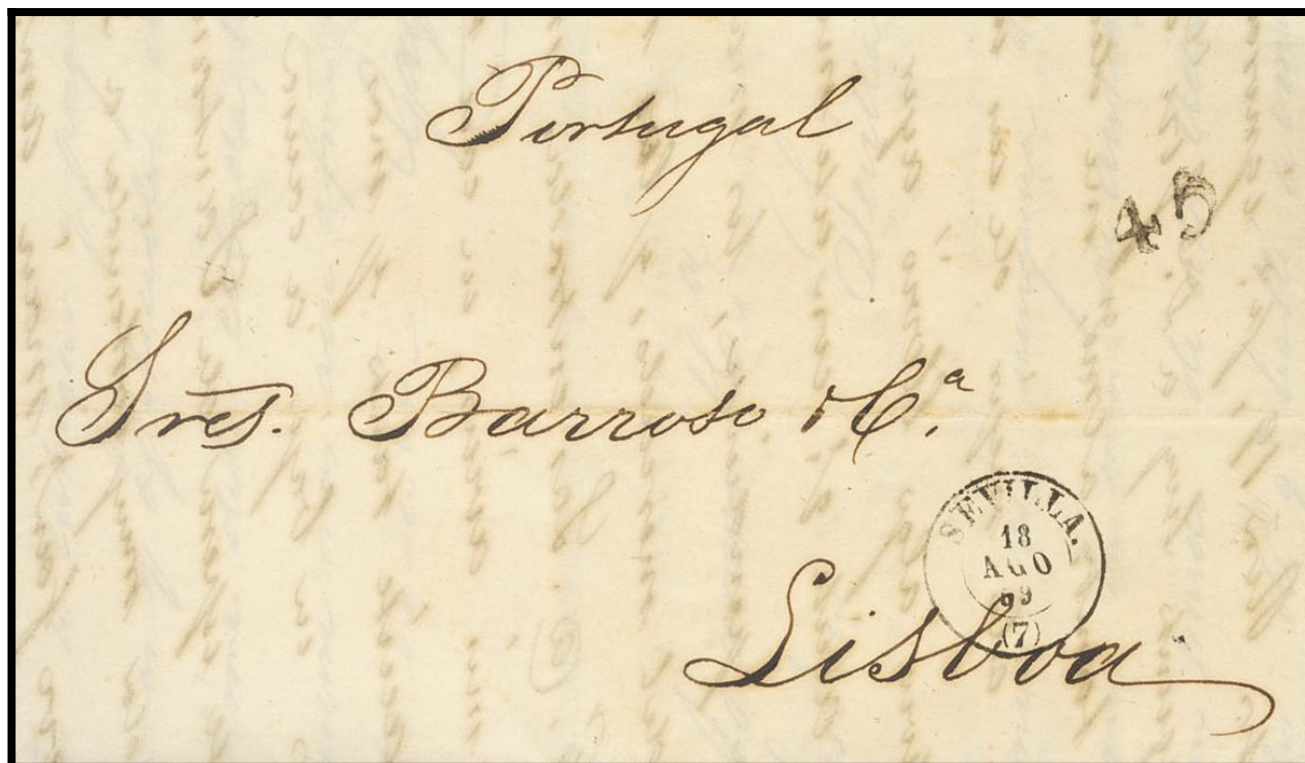 Portugal
45
Sres. Barroso y Ca.
SEVILLA.
18
AGO
59
(7)
Lisboa